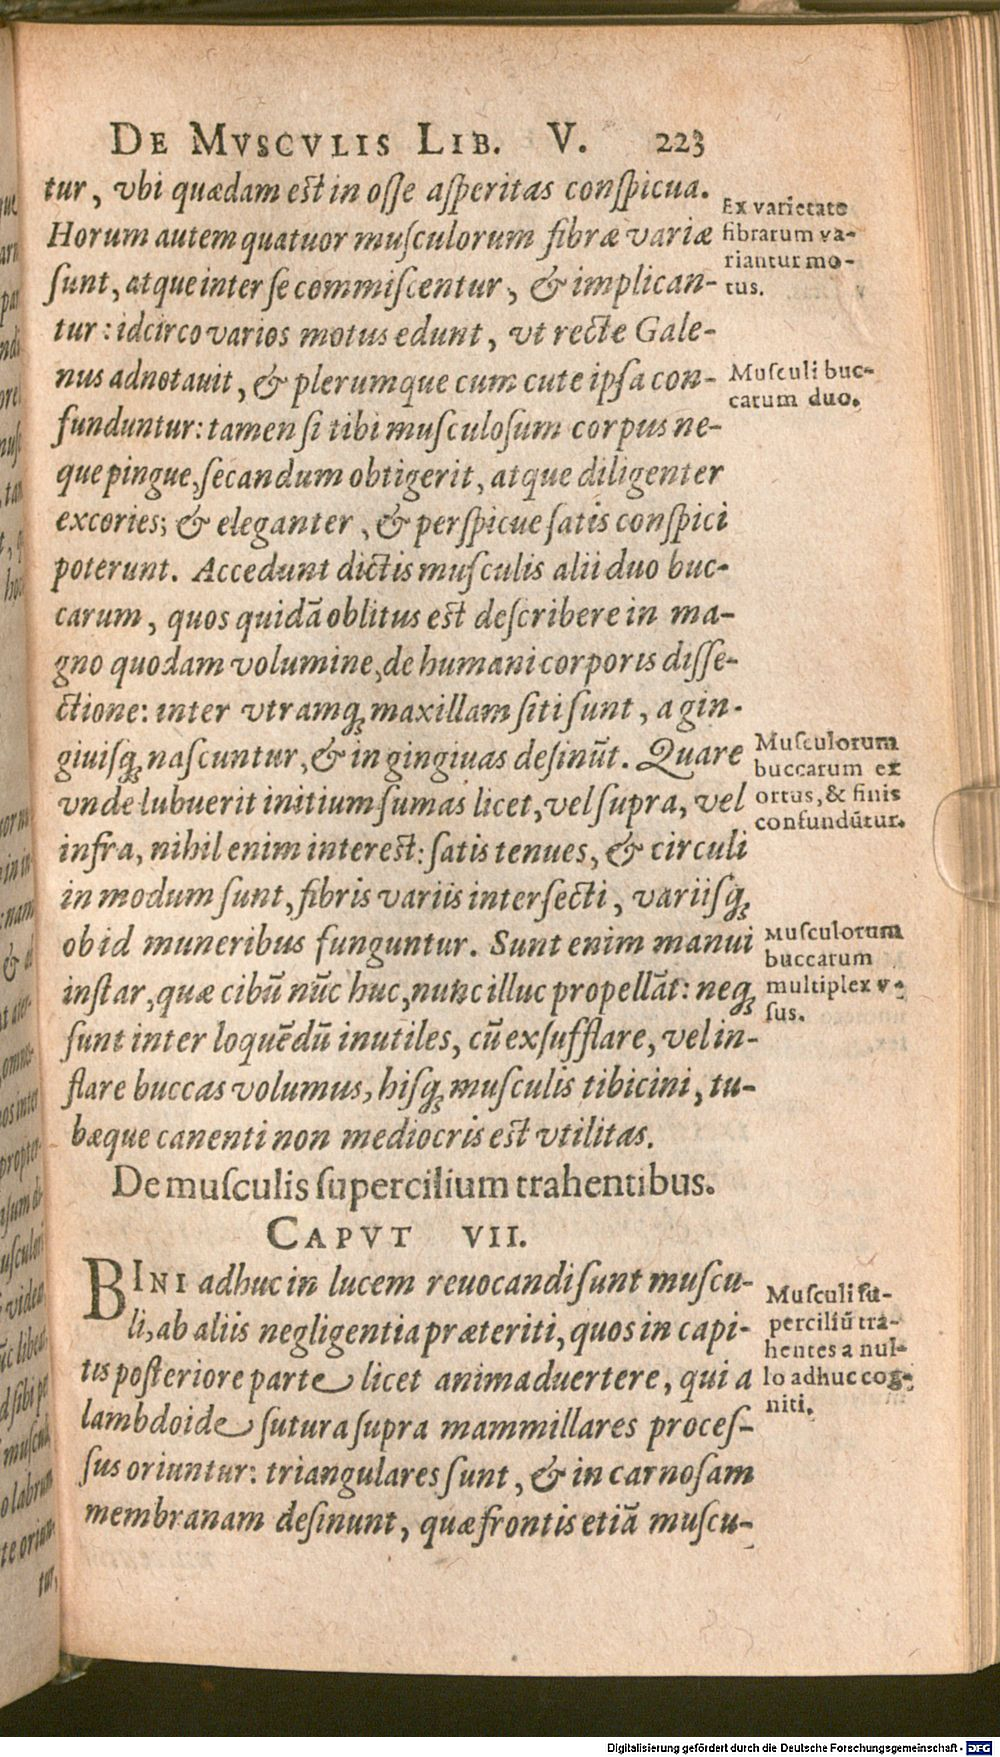 DE MVSCVLIS LIB. V. 223
tur, vbi quædam est in osse asperitas conspicua.
Horum autem quatuor musculorum fibræ variæ
sunt, atque inter se commiscentur, & implican-
tur: idcirco varios motus edunt, vt recte Gale-
nus adnotauit, & plerumque cum cute ipsa con-
funduntur: tamen si tibi musculosum corpus ne-
que pingue, secandum obtigerit, atque diligenter
excories; & eleganter, & perspicue satis conspici
poterunt. Accedunt dictis musculis alii duo buc-
carum, quos quidã oblitus est describere in ma-
gno quodam volumine, de humani corporis disse-
ctione: inter vtramq; maxillam siti sunt, a gin-
giuisq; nascuntur, & in gingiuas desinũt. Quare
vnde lubuerit initium sumas licet, vel supra, vel
infra, nihil enim interest: satis tenues, & circuli
in modum sunt, fibris variis intersecti, variisq;
ob id muneribus funguntur. Sunt enim manui
instar, quæ cibũ nũc huc, nunc illuc propellãt: neq;
sunt inter loquẽdũ inutiles, cũ exsufflare, vel in-
flare buccas volumus, hisq; musculis tibicini, tu-
bæque canenti non mediocris est vtilitas.
De musculis supercilium trahentibus.
CAPVT VII.
BINI adhuc in lucem reuocandi sunt muscu-
li, ab aliis negligentia præteriti, quos in capi-
tis posteriore parte licet animaduertere, qui a
lambdoide sutura supra mammillares proces-
sus oriuntur: triangulares sunt, & in carnosam
membranam desinunt, quæ frontis etiã muscu-
Ex varietate
fibrarum va-
riantur mo-
tus.
Musculi buc-
carum duo.
Musculorum
buccarum ex
ortus, & finis
confundũtur.
Musculorum
buccarum
multiplex v-
sus.
Musculi su-
perciliũ tra-
hentes a nul-
lo adhuc cog-
niti.
Digitalisierung gefördert durch die Deutsche Forschungsgemeinschaft - DFG